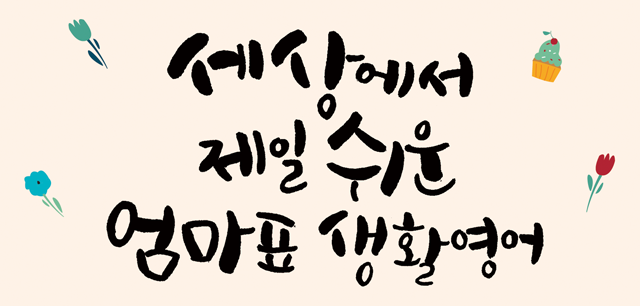 세상에서
제일 쉬운
엄마표 생활영어